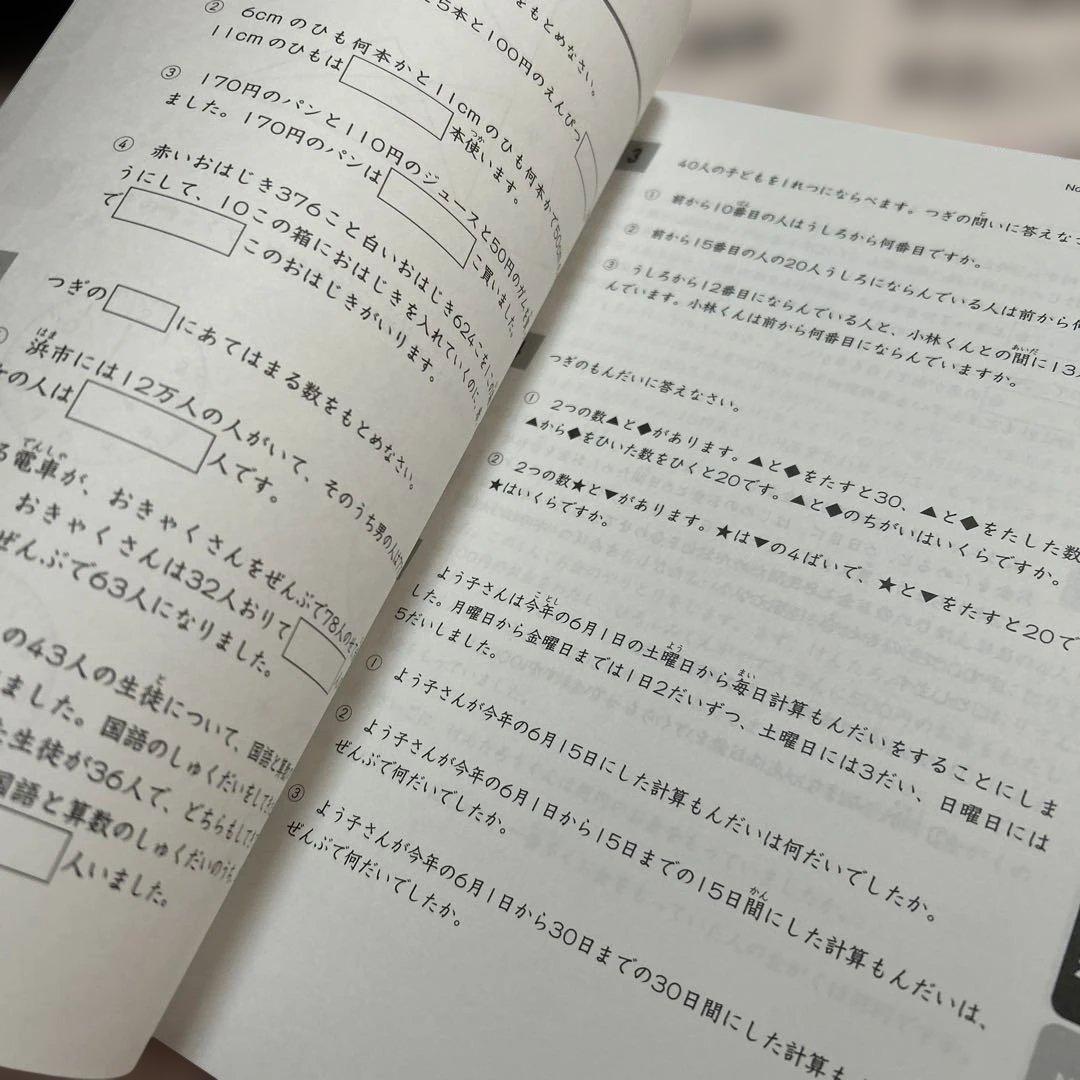 をもとめなさい。
25本と100円のえんぴつ
② 6cmのひも何本かと11cmのひも何本かで50cm
11cmのひもは 本使います。
③ 170円のパンと110円のジュースと50円のガムを
ました。170円のパンは こ買いました。
④ 赤いおはじき376こと白いおはじき624こを1この
うにして、10この箱におはじきを入れていくのに、
で このおはじきがいります。
つぎの にあてはまる数をもとめなさい。
浜市には12万人の人がいて、そのうち男の人は
の人は 人です。
る電車が、おきゃくさんをぜんぶで78人のせて
おきゃくさんは32人おりて
ぜんぶで63人になりました。
の43人の生徒について、国語と算数
ました。国語のしゅくだいをして
た生徒が36人で、どちらもして
国語と算数のしゅくだいのうち
人いました。
3
No
40人の子どもを1れつにならべます。つぎの問いに答えな
① 前から10番目の人はうしろから何番目ですか。
② 前から15番目の人の20人うしろにならんでいる人は前から何
③ うしろから12番目にならんでいる人と、小林くんとの間に13人
んでいます。小林くんは前から何番目にならんでいますか。
つぎのもんだいに答えなさい。
① 2つの数▲と◆があります。▲と◆をたすと30、▲と◆をたした数
▲から◆をひいた数をひくと20です。▲と◆のちがいはいくらですか。
② 2つの数★と▼があります。★は▼の4ばいで、★と▼をたすと20で
★はいくらですか。
よう子さんは今年の6月1日の土曜日から毎日計算もんだいをすることにしま
した。月曜日から金曜日までは1日2だいずつ、土曜日には3だい、日曜日には
5だいしました。
① よう子さんが今年の6月15日にした計算もんだいは何だいでしたか。
② よう子さんが今年の6月1日から15日までの15日間にした計算もんだいは、
ぜんぶで何だいでしたか。
③ よう子さんが今年の6月1日から30日までの30日間にした計算も
ぜんぶで何だいでしたか。